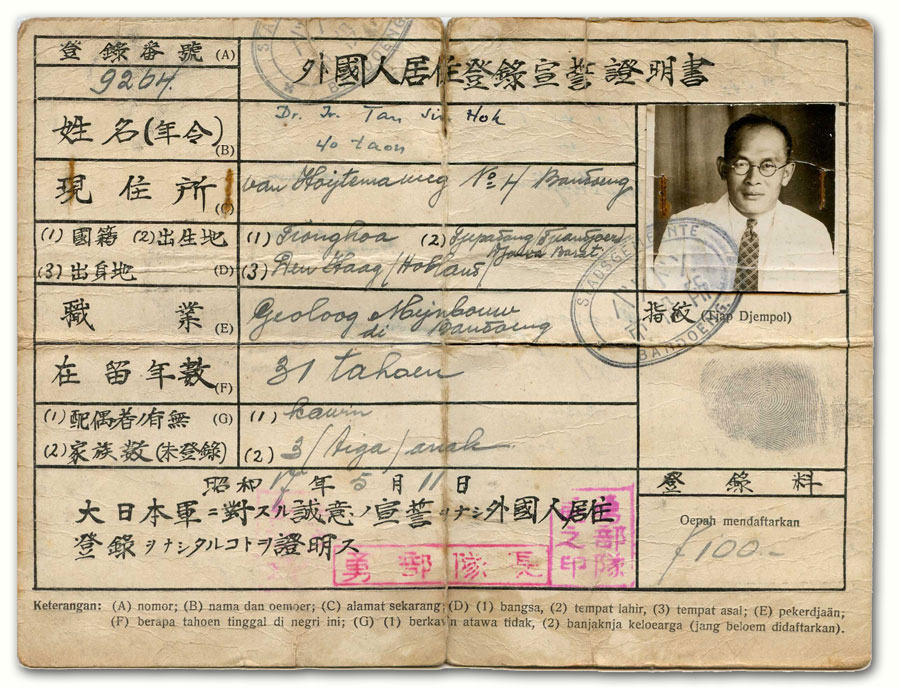 登錄番號 (A)
9264.
外國人居住登錄宣誓證明書
姓名(年令) (B)
Dr. Ir. Tan Sin Hok
40 taon
現住所 (C)
van Hoytemaweg No 4 / Bandoeng
(1) 國籍 (2) 出生地
(3) 出身地 (D)
(1) Tionghoa (2) Tjepatong/Tjiandjoer
Djawa Barat
(3) Den Haag/Holland
職業 (E)
Geoloog Mijnbouw
di Bandoeng
指紋 (Tjap Djempol)
STADSGEMEENTE
BANDOENG.
在留年數 (F)
31 tahoen
(1) 配偶者ノ有無 (G)
(1) kawin
(2) 家族數 (未登錄)
(2) 3/tiga/anak
昭和 17 年 5 月 11 日
大日本軍ニ對スル誠意ノ宣誓ヲナシ外國人居住
登錄ヲナシタルコトヲ證明ス
勇部隊長
勇部隊之印
登錄料
Oepah mendaftarkan
f 100.-
Keterangan: (A) nomor; (B) nama dan oemoer; (C) alamat sekarang; (D) (1) bangsa, (2) tempat lahir, (3) tempat asal; (E) pekerdjaän;
(F) berapa tahoen tinggal di negri ini; (G) (1) berkawin atawa tidak, (2) banjaknja keloearga (jang beloem didaftarkan).